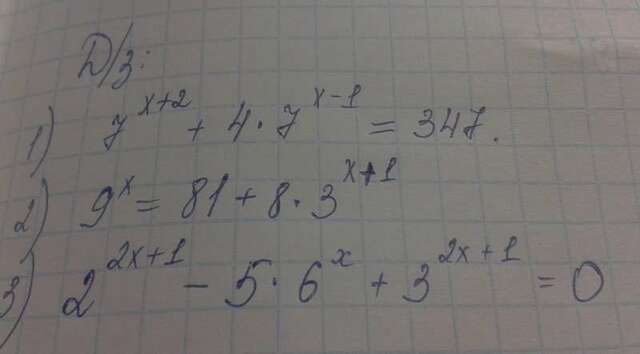 Д/з:
1) 7^{x+2} + 4 · 7^{x-1} = 347.
2) 9^x = 81 + 8 · 3^{x+1}
3) 2^{2x+1} - 5 · 6^x + 3^{2x+1} = 0